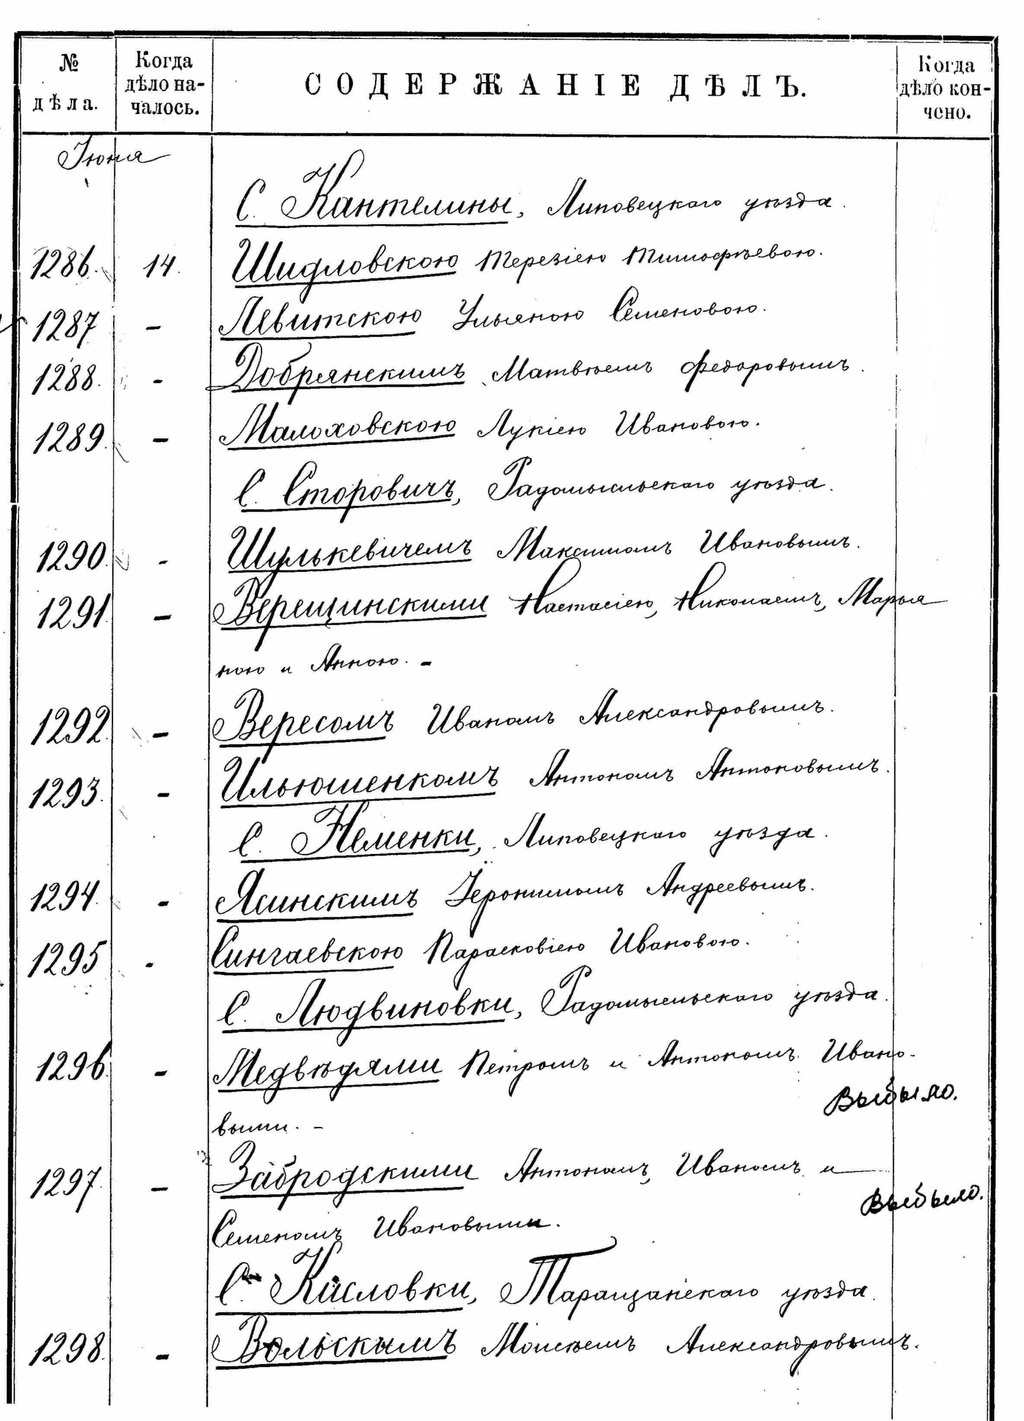 № дѣла.
Когда дѣло на-
чалось.
СОДЕРЖАНІЕ ДѢЛЪ.
Когда дѣло кон-
чено.
Іюня
С. Кантелины, Липовецкаго уѣзда.
1286. 14. Шидловскою Терезіею Тимофѣевою.
1287 - Левитскою Ульяною Семеновою.
1288. - Добрянскимъ Матвѣемъ Федоровымъ.
1289. - Малоховскою Лукіею Ивановою.
С. Сторовичъ, Радомысльскаго уѣзда.
1290. - Шулькевичемъ Максимомъ Ивановымъ.
1291 - Верещинскими Настасіею, Николаемъ, Марья
ною и Анною. -
1292 - Вересомъ Иваномъ Александровымъ.
1293. - Ильюшенкомъ Антономъ Антоновымъ.
С. Неменки, Липовецкаго уѣзда.
1294. - Ясинскимъ Іеронимомъ Андреевымъ.
1295 - Сингаевскою Парасковіею Ивановою.
С. Людвиновки, Радомысльскаго уѣзда.
1296. - Медвѣдями Петромъ и Антономъ Ивано-
Выбыло.
выми. -
1297. - Забродскими Антономъ, Иваномъ и
Выбыло.
Семеномъ Ивановыми.
С. Кисловки, Таращанскаго уѣзда.
1298. - Вольскимъ Моисѣемъ Александровымъ.